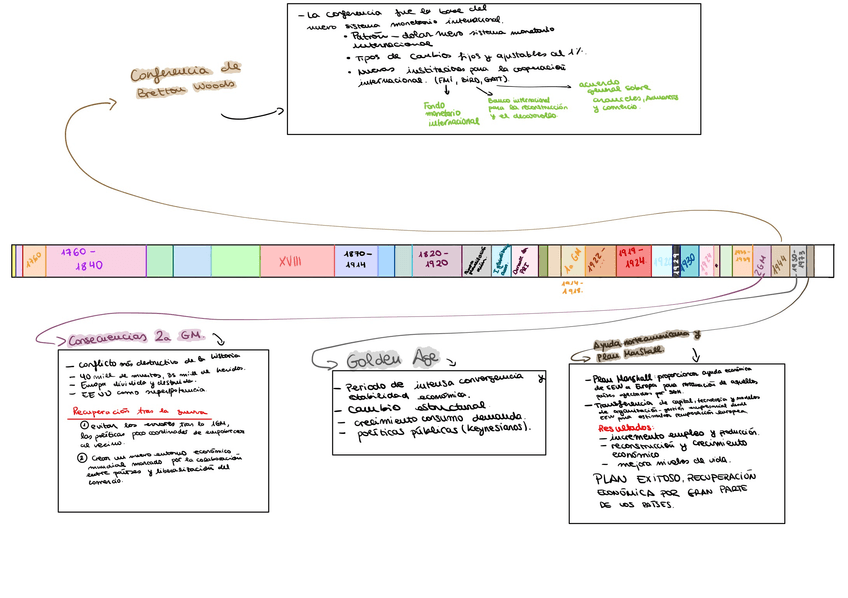 - La conferencia fue la base del
nuevo sistema monetario internacional.
• Patrón - dolar nuevo sistema monetario
internacional
• Tipos de cambios fijos y ajustables al 1%.
• Nuevas instituciones para la cooperación
internacional. (FMI, BIRD, GATT).
Conferencia de
Bretton Woods
Fondo
monetario
internacional
Banco internacional
para la reconstrucción
y el desarrollo
acuerdo
general sobre
aranceles,
y comercio
1760
1760 -
1840
XVIII
1870-
1914
1820-
1920
1a GM
1922
1919-
1924
1929
1930
2GM
1944
1950-
1973
1914-
1918
Consecuencias 2a GM.
- conflicto más destructivo de la historia
- 40 mill de muertos, 35 mill de heridos.
- Europa dividida y destruida.
- EEUU como superpotencia
Recuperación tras la guerra
① evitar los errores tras la 1GM,
las políticas poco coordinadas de empobrecer
al vecino.
② Crear un nuevo entorno económico
mundial marcado por la colaboración
entre países y liberalización del
comercio.
Golden Age
- Periodo de intensa convergencia y
estabilidad económica.
- cambio estructural
- crecimiento consumo demanda.
- políticas públicas (Keynesianos).
Ayuda norteamericana y
Plan Marshall.
- Plan Marshall: proporcionar ayuda económica
de EEUU a Europa para restauración de aquellos
países afectados por 2GM
- Transferencia de capital, tecnología y modelos
de organización, gestión empresarial desde
EEUU para estimular recuperación europea
Resultados:
- incremento empleo y producción.
- reconstrucción y crecimiento
económico
- mejora niveles de vida.
PLAN EXITOSO, RECUPERACIÓN
ECONÓMICA POR GRAN PARTE
DE LOS PAÍSES.